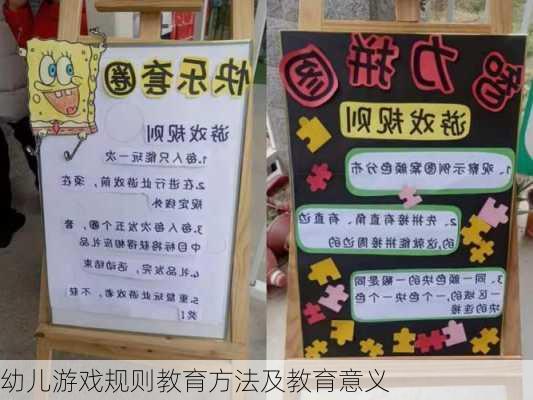 快乐套圈
游戏规则
1.每人只能玩一次
2.在进行此游戏前，须在
规定线外
3.每人每次发五个圈，套
中目标将获得相应礼品
4.礼品发完，活动结束
5.重复玩此游戏者，不获
奖！
智力拼图
游戏规则
1、观察示例图案颜色分布
2、先拼接有直角、有直边
的这就能拼接周边的
3、同一颜色块的一般是同
一区域的，一个色一个色
块的连接
幼儿游戏规则教育方法及教育意义